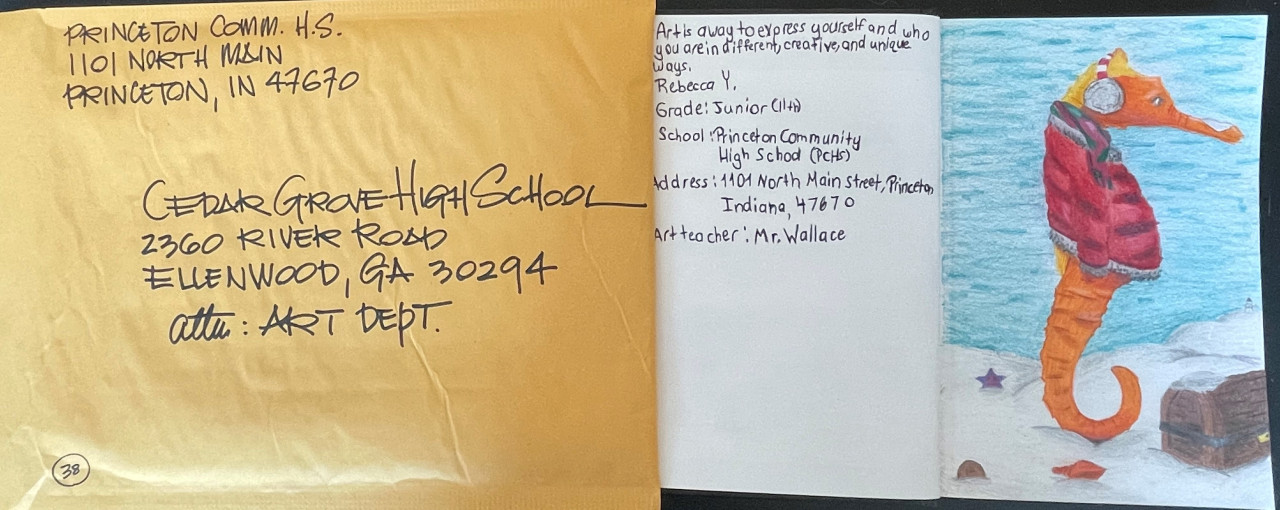 PRINCETON COMM. H.S.
1101 NORTH MAIN
PRINCETON, IN 47670
CEDAR GROVE HIGH SCHOOL
2360 RIVER ROAD
ELLENWOOD, GA 30294
attn: ART DEPT.
38
Art is a way to express yourself and who
you are in different, creative, and unique
ways.
Rebecca Y.
Grade: Junior (11th)
School: Princeton Community
High School (PCHS)
Address: 1101 North Main Street, Princeton
Indiana, 47670
Art teacher: Mr. Wallace